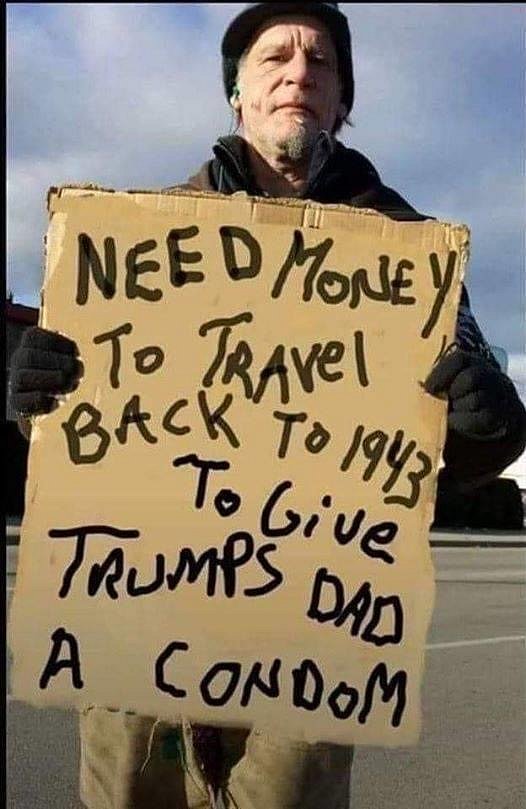 NEED MONEY
To TRAVel
BACK To 1943
To Give
TRUMPS DAD
A CONDOM